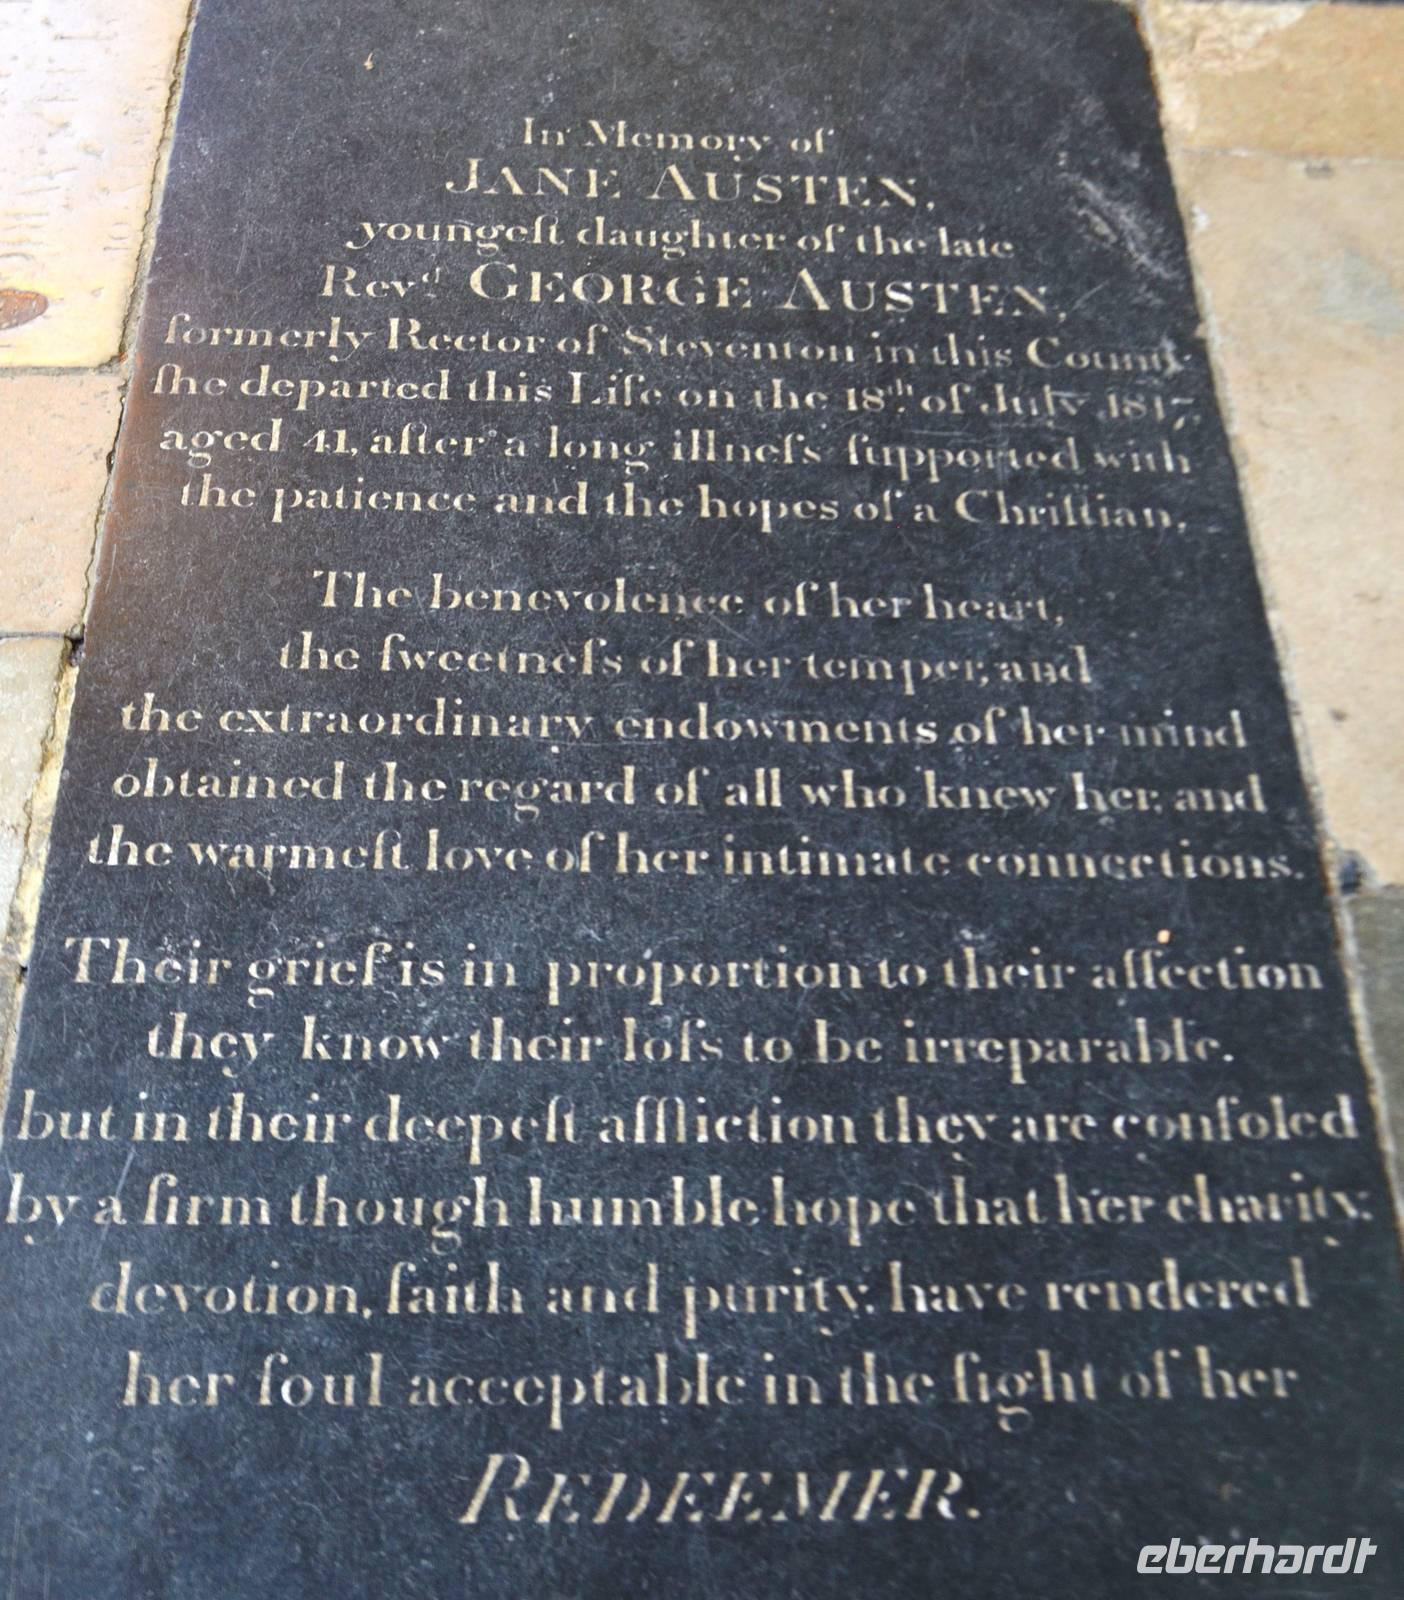 In Memory of
JANE AUSTEN,
youngeſt daughter of the late
Revᵈ GEORGE AUSTEN,
formerly Rector of Steventon in this County
ſhe departed this Life on the 18ᵗʰ of July 1817,
aged 41, after a long illneſs ſupported with
the patience and the hopes of a Chriſtian.
The benevolence of her heart,
the ſweetneſs of her temper, and
the extraordinary endowments of her mind
obtained the regard of all who knew her, and
the warmeſt love of her intimate connections.
Their grief is in proportion to their affection
they know their loſs to be irreparable.
but in their deepeſt affliction they are conſoled
by a firm though humble hope that her charity,
devotion, faith and purity, have rendered
her ſoul acceptable in the ſight of her
REDEEMER.
eberhardt